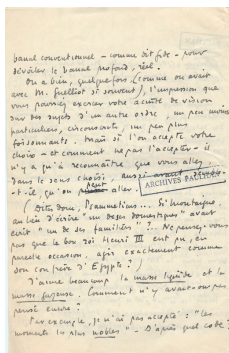 banal conventionnel – comme dit Gide – pour
dévoiler le banal profond, réel.
Ou a bien, quelquefois (comme on avait
avec M. Fuelliot si souvent), l'impression que
vous pourriez exercer votre acuité de vision
sur des sujets d'un autre ordre, un peu moins
particuliers, circonscrits, un peu plus
foisonnants. Mais si l'on accepte votre
choix – et comment ne pas l'accepter – il
n'y a qu'à reconnaître que vous allez
dans le sens choisi, aussi avant
-t-il qu'on peut aller.
ARCHIVES PAULHAN
(Dites donc, Psammétichus... Si Montaigne,
au lieu d'écrire "un de ses domestiques" avait
écrit "un de ses familiers"... Ne pensez-vous
pas que le bon roi Henri III eut pu, en
pareille occasion, agir exactement comme
son confrère d'Egypte?)
J'aime beaucoup la masse liquide et la
masse gazeuse. Comment n'y avait-on pas
pensé encore?
Par exemple, je n'ai pas accepté: "les
moments les plus nobles". D'après quel code?